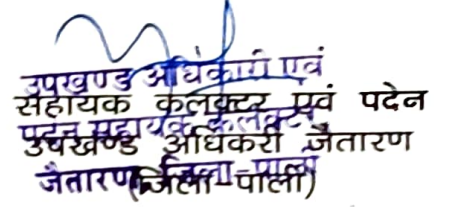 उपखण्ड अधिकारी एवं
सहायक कलक्टर एवं पदेन
पदेन सहायक कलक्टर
उपखण्ड अधिकरी जैतारण
जैतारण जिला-पाली
(जिला-पाली)